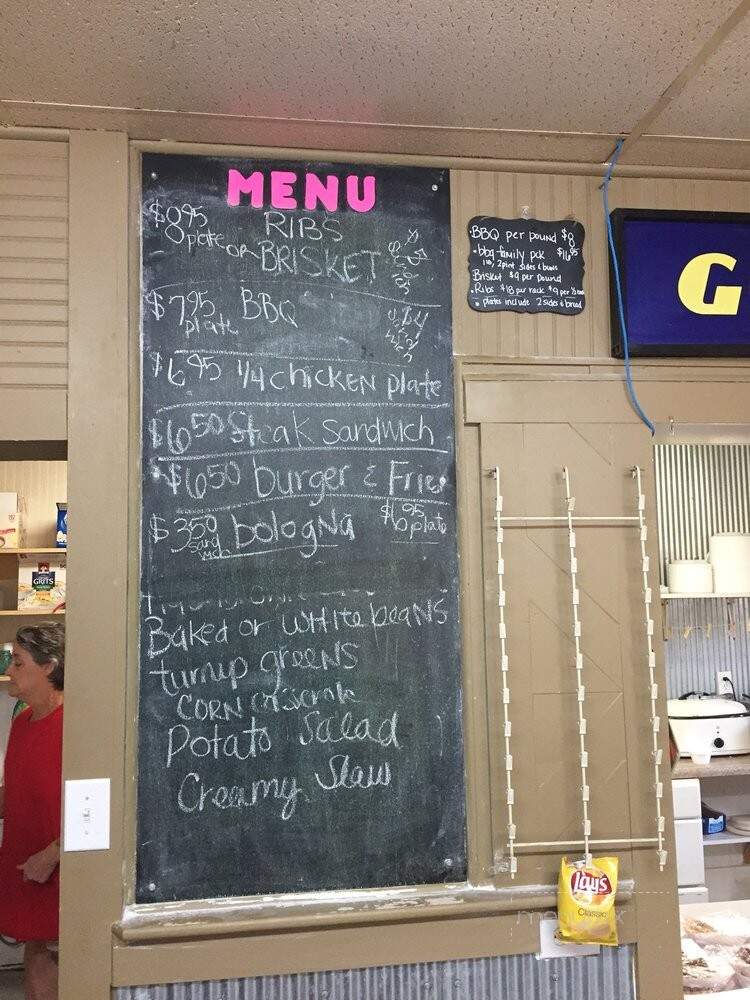 MENU
$8.95 plate RIBS
or BRISKET
$7.95 plate BBQ
$4
$6.95 1/4 chicken plate
$6.50 Steak Sandwich
$6.50 burger & Fries
$3.50 Sand wch bologna $6.95 plate
Baked or white beans
turnip greens
CORN casserole
Potato Salad
Creamy Slaw
BBQ per pound $8
bbq family pck $16.95
1 lb, 2 pint sides & buns
Brisket $9 per pound
Ribs $18 per rack $9 per 1/2 rack
plates include 2 sides & bread
G
GRITS
Lay's
Classic